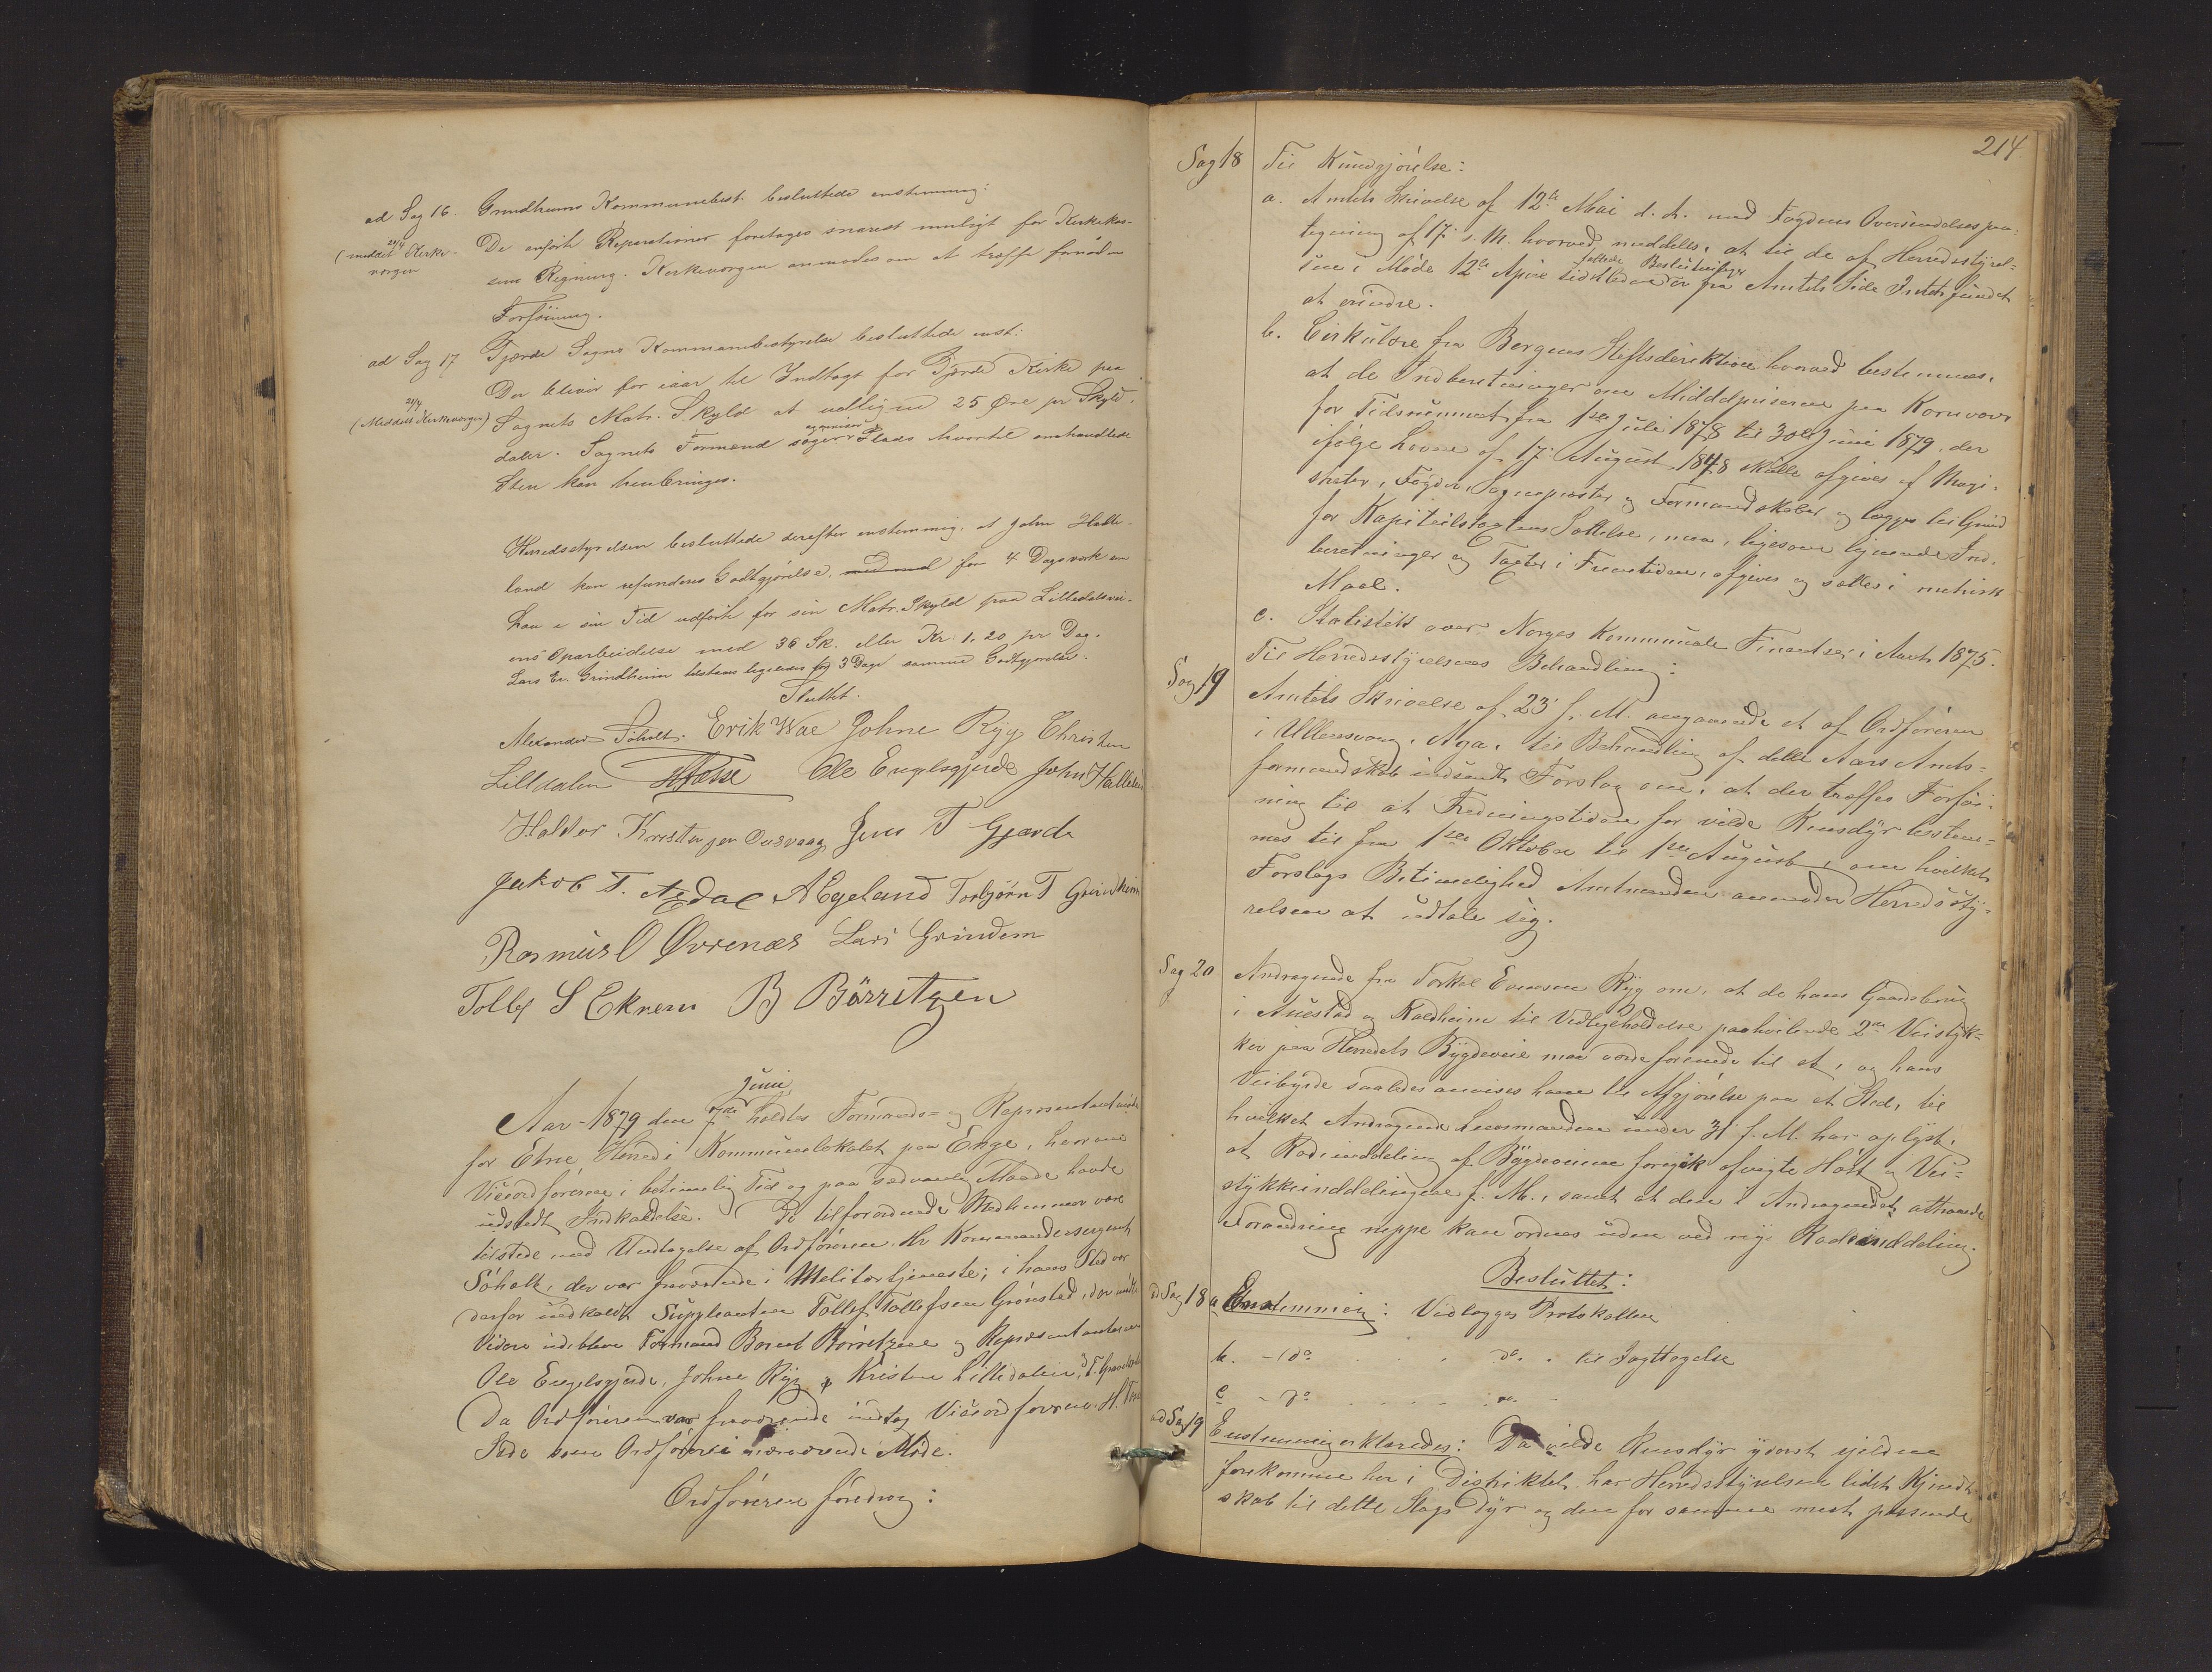 ad Sag 16. Grindheims Kommunebest. besluttede enstemmig:
(meddelt 21/4 Kirke-
vergen
De anförte Reparationer foretages snarest muligt for Kirkekas-
sens Regning. Kirkevergen anmodes om at træffe fornöden
Forföining.
ad Sag 17 Gjerde Sogns Kommunebestyrelse besluttede enst:
21/4
(Meddelt Kirkevergen)
Der bliver for iaar til Indtægt for Gjerde Kirke paa
Sognets Matr. Skyld at udligne 25 Öre pr Skyld-
daler. Sognets Formænd söger Plads hvortil omhandlede
Sten kan henbringes.
Herredsstyrelsen besluttede derefter enstemmig, at John Halle-
land kan refunderes Godtgjörelse, for 4 Dagsværk som
han i sin Tid udförte for sin Matr. Skyld paa Lilledalsvei-
ens Oparbeidelse med 36 Sk. eller Kr. 1.20 pr Dag.
Lars Er. Grindheim tilstaaes ligeledes for 3 Dage samme Godtgjörelse.
Sluttet.
Alexander Söholt. Erik Wae Johne Ryg Christen
Lilldalen HTesse Ole Engelsgjerde John Halleland
Haldor Kristensen Osvaag Jens T Gjerde
Jakob T. Ædal A Egeland Torbjörn T Grindheim
Rasmus O Øvrenæs Lars Grindem
Tollef S Ekrem B Börretzen
Aar 1879 den 7de Juni holdtes Formands- og Repræsentantmöde
for Etne Herred i Kommunelokalet paa Enge, hvorom
Viceordföreren i betimelig Tid og paa sædvanlig Maade havde
udstedt Indkaldelse. De tilforordnede Medlemmer vare
tilstede med Undtagelse af Ordföreren Hr Kommandersergeant
Söholt, der var fraværende i Militærtjeneste; i hans Sted var
derfor indkaldt Suppleanten Tollef Tollefsen Grönstad, der mödte
Videre udebleve Formand Bernt Börretzen og Repræsentanterne
Ole Engelsgjerde, Johne Ryg og Kristen Lilledalen,
Da Ordföreren var fraværende indtog Viceordföreren H.
Sæde som Ordförer i nærværende Möde.
Ordföreren foredrog:
214.
Sag 18 Til Kundgjörelse:
a. Amtets Skrivelse af 12te Mai d. A. med Fogdens Oversendelsespaa-
tegning af 17. s. M. hvorved meddeles, at til de af Herredsstyrel-
sen i Möde 12te April sidstleden fattede Beslutninger er fra Amtets Side Intet fundet
at erindre.
b. Cirkulære fra Bergens Stiftsdirektion hvorved bestemmes,
at de Indberetninger om Middelpriserne paa Kornvarer
for Tidsrummet fra 1ste Juli 1878 til 30te Juni 1879, der
ifölge Loven af 17. August 1848 skulle afgives af Magi-
strater, Fogder, Sognepræster og Formandskaber og lægges til Grund
for Kapitelstaxtens Sættelse, maa, ligesom lignende Ind-
beretninger og Taxter i Fremtiden, afgives og sættes i metrisk
Maal.
c. Statistik over Norges kommunale Finantser i Aaret 1875.
Sag 19 Til Herredsstyrelsens Behandling:
Amtets Skrivelse af 23. f. M. angaaende et af Ordföreren
i Ullensvang, Aga, til Behandling af dette Aars Amts-
formandskab indsendt Forslag om, at der træffes Forföi-
ning til at Fredningstiden for vilde Rensdyr bestem-
mes til fra 1ste Oktober til 1ste August, om hvilket
Forslags Betimelighed Amtmanden anmoder Herredssty-
relsen at udtale sig.
Sag 20 Andragende fra Torkel Ryg om, at de hans Gaardsbrug
i Austad og Kaldheim til Vedligeholdelse paahvilende 2de Veistyk-
ker paa Herredets Bygdeveie maa vorde forenede til et, og hans
Veibyrde saaledes anvises ham til Afgjörelse paa et Sted, til
hvilket Andragende Lensmanden under 31 f. M. har oplyst,
at Rodeinddeling af Bygdeveiene foregik afvigte Höst og Vei-
stykkeinddelingen f. M., samt at den i Andragendet attraaede
Forandring neppe kan ordnes uden ved ny Rodeinddeling.
Besluttet:
ad Sag 18 a Enstemmig: Vedlægges Protokollen
b. - do . . . do. . til Iagttagelse
c - do . . . . do. -
ad Sag 19 Enstemmig erklæredes: Da vilde Rensdyr yderst sjelden
forekomme her i Distriktet, har Herredsstyrelsen lidet Kjendt-
skab til dette Slags Dyr og den for samme mest passende